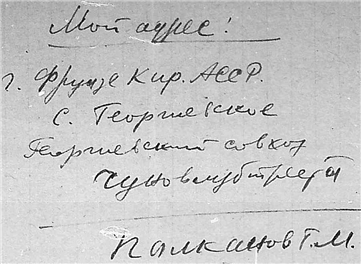 Мой адрес!
г. Фрунзе Кир. АССР.
с. Георгиевское
Георгиевский совхоз
Палканов Г. М.